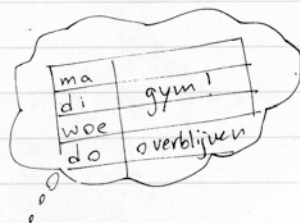 ma
di gym!
woe
do overblijven